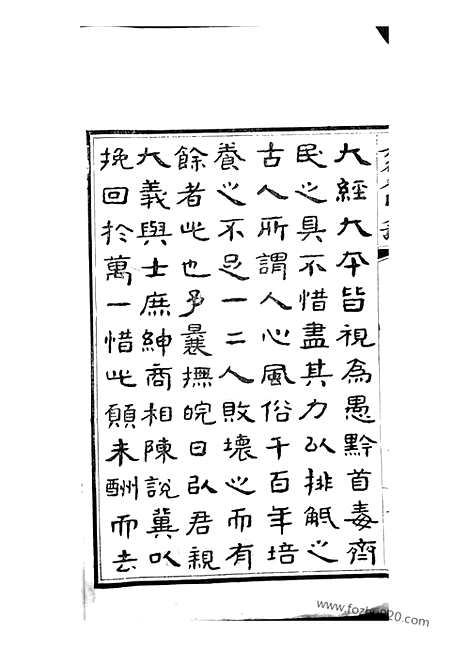 大經大本皆視為愚黔首毒齊
民之具不惜盡其力以排觝之
古人所謂人心風俗千百年培
養之不足一二人敗壞之而有
餘者此也予曩撫皖日以君親
大義與士庶紳商相陳說冀以
挽回於萬一惜此願未酬而去
www.fozhu920.com